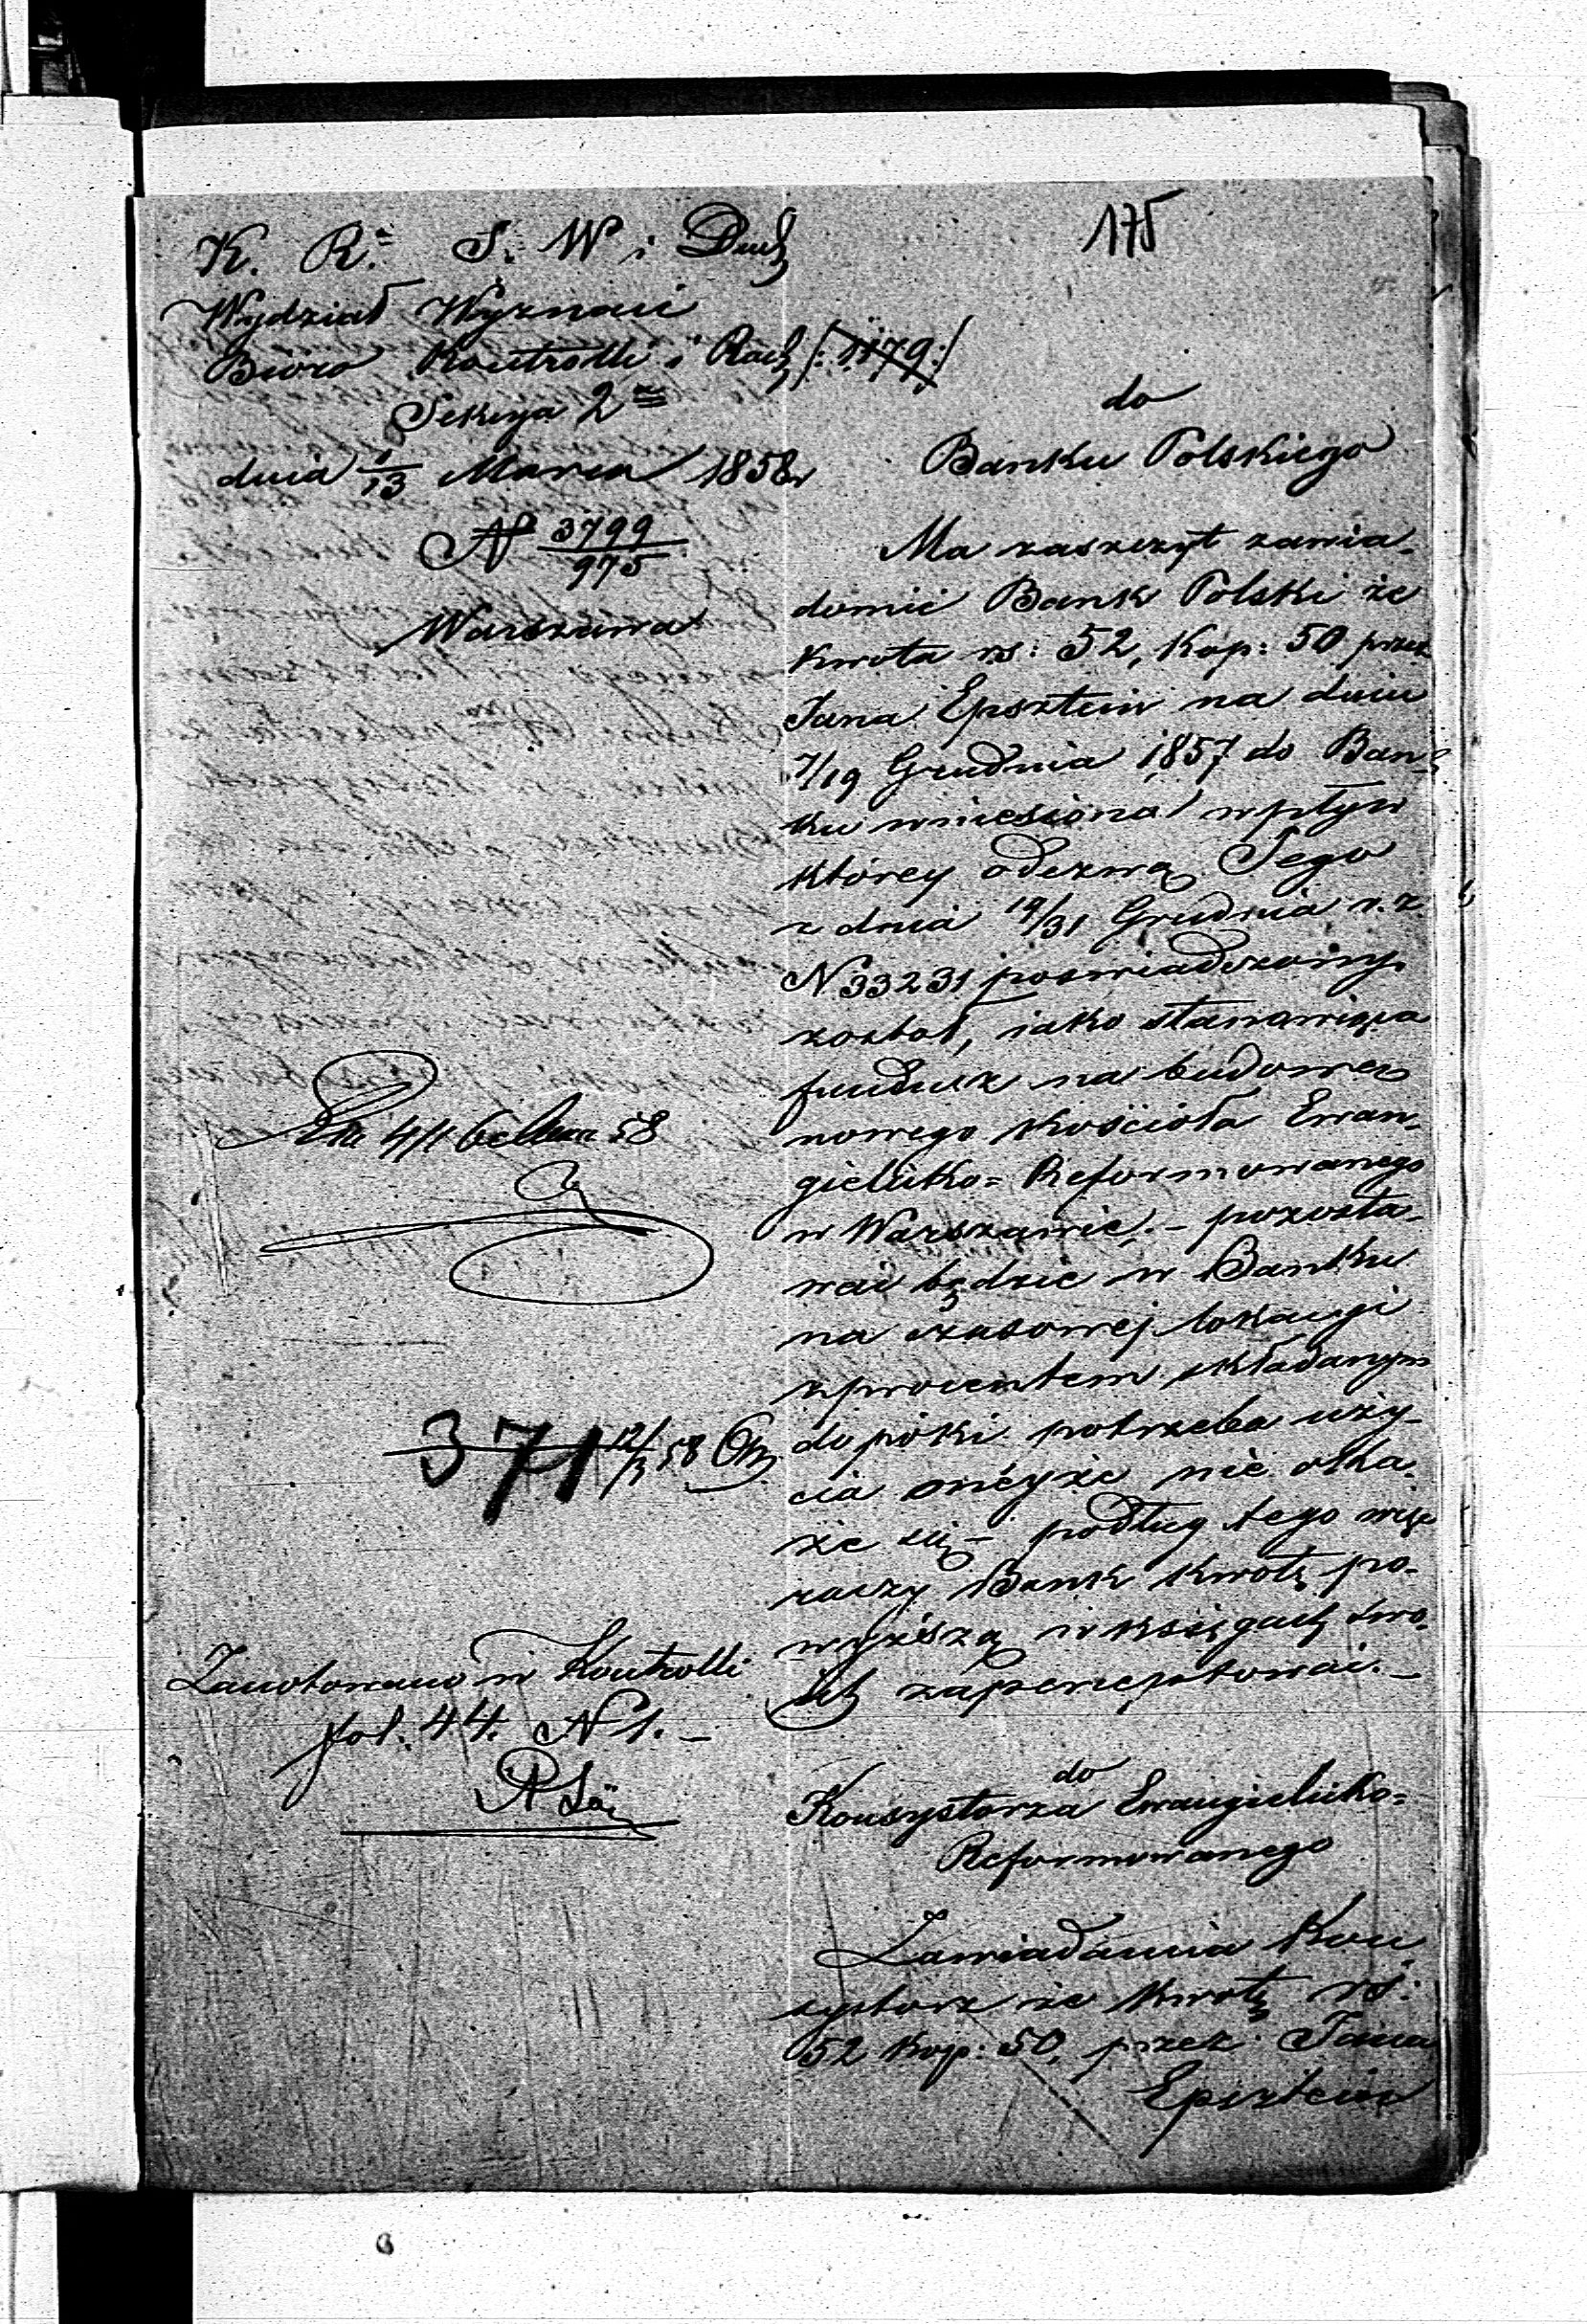 175
K. R. S. W i Duch
Wydział Wyznań
Biuro Kontrolli i Rach /: 1179 :/
Sekcya 2
dnia 1/13 Marca 1858 r
N 3799/975
Warszawa
do
Banku Polskiego
Ma zaszczyt zawia-
domić Bank Polski że
kwota rs: 52, kop: 50 przez
Jana Epsztein na dniu
7/19 Grudnia 1857 do Ban-
ku wniesiona wpływ
którey odezwą Jego
z dnia 19/31 Grudnia r. z.
N 33231 poswiadczony
został, iako stanowiąca
fundusz na budowę
nowego kościoła Ewan-
gielicko-Reformowanego
w Warszawie, - pozosta-
wać będzie w Banku
na czasowej lokacyi
z procentem składanym
dopóki potrzeba uży-
cia oneyże nie oka-
że się - podług tego więc
raczy Bank kwotę po-
wyższą w księgach swo-
ich zapercepctować. -
58
371 12/3 58
Zanotowano w Kontrolli
fol. 44. N 1. -
do
Konsystorza Ewangielicko-
Reformowanego
Zawiadamia Kon
systorz że kwotę rs:
52 kop: 50, przez Jana
Epsztein